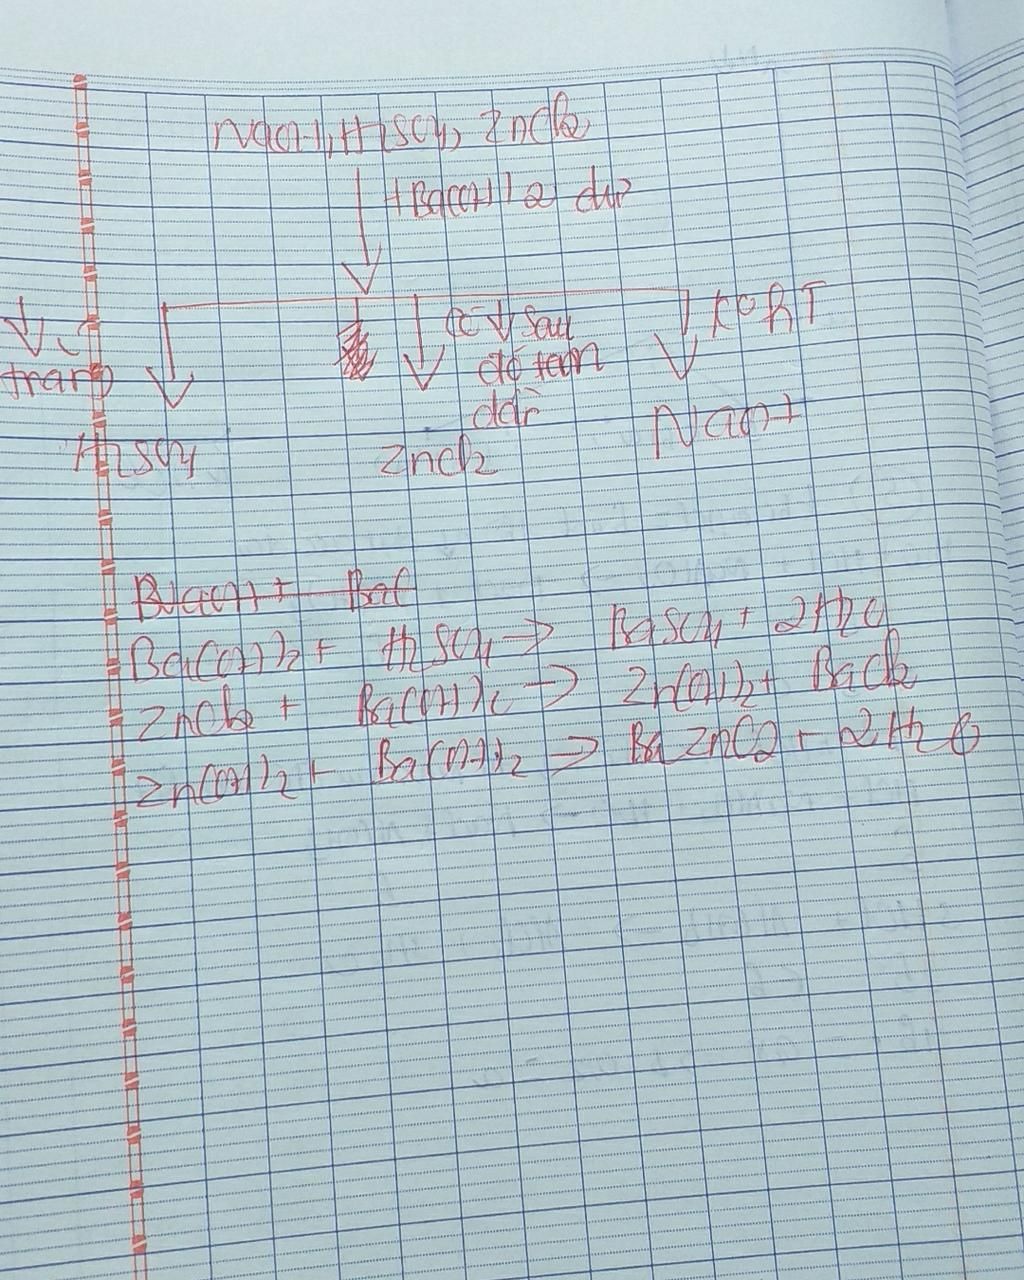 NaOH, H2SO4, ZnCl2
+Ba(OH)2 dư
↓
trắng
có ↓ sau
đó tan
dần
KPRT
H2SO4
ZnCl2
NaOH
Ba(OH)2 + H2SO4 → BaSO4 + 2H2O
ZnCl2 + Ba(OH)2 → Zn(OH)2 + BaCl2
Zn(OH)2 + Ba(OH)2 → BaZnO2 + 2H2O